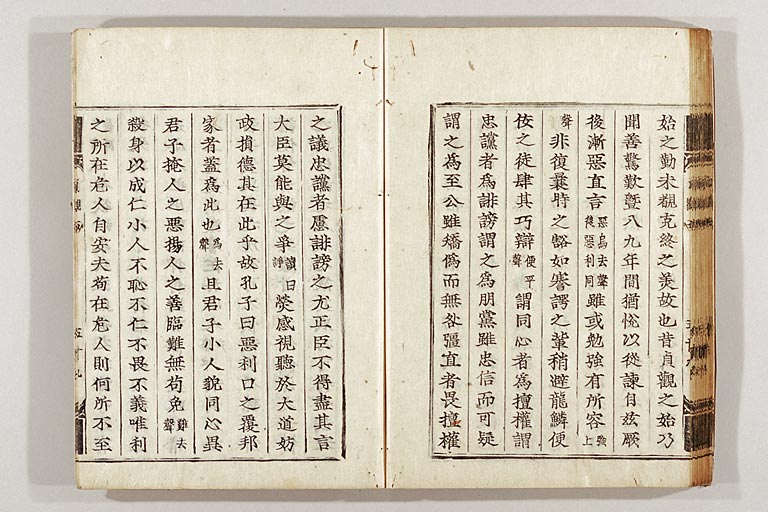 始之勤未覩克終之美故也昔貞觀之始乃
聞善驚歎曁八九年間猶悅以從諫自玆厥
後漸惡直言惡烏去聲後惡利同雖或勉強有所容強上
聲非復曩時之豁如謇諤之輩稍避龍鱗便
佞之徒肆其巧辯便平聲謂同心者為擅權謂
忠讜者爲誹謗謂之爲朋黨雖忠信而可疑
謂之爲至公雖矯僞而無咎彊直者畏擅權
之議忠讜者慮誹謗之尤正臣不得盡其言
大臣莫能與之爭讀曰諍熒惑視聽於大道妨
政損德其在此乎故孔子曰惡利口之覆邦
家者蓋爲此也爲去聲且君子小人貌同心異
君子掩人之惡揚人之善臨難無苟免難去聲
殺身以成仁小人不恥不仁不畏不義唯利
之所在危人自安夫苟在危人則何所不至